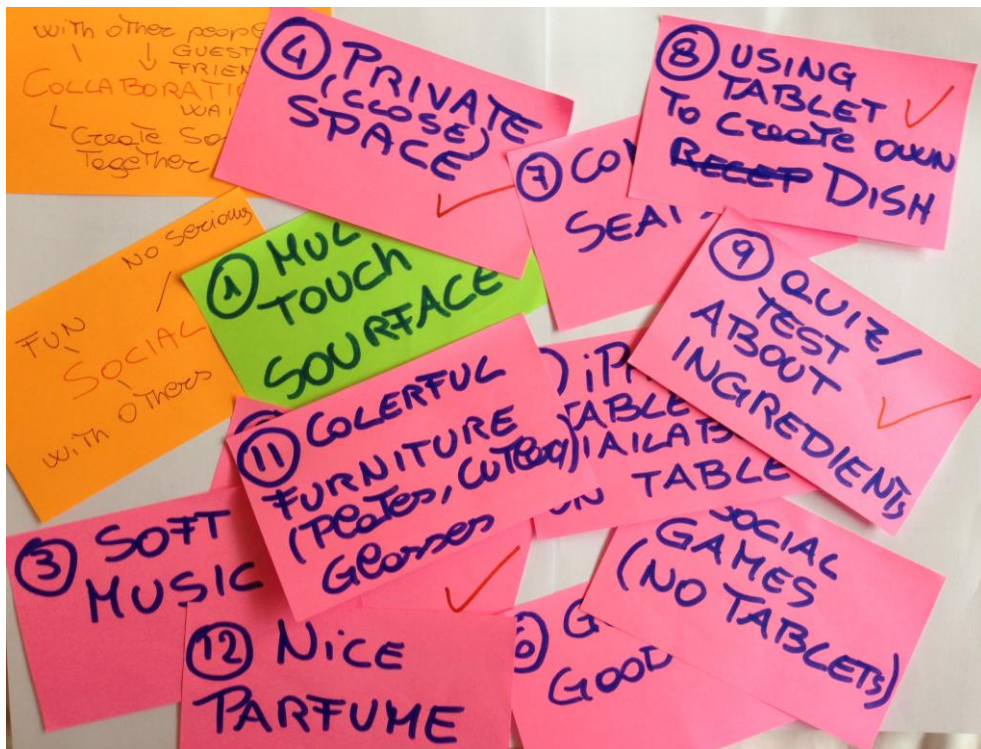 with other people
GUEST
FRIEN
COLLABORATI
WAI
Create So
Together
4 PRIVATE
(CLOSE)
SPACE
8 USING
TABLET
To Create own
DISH
7 CO
SEAT
NO serious
FUN
SOCIAL
with others
1 MUL
TOUCH
SOURFACE
9 QUIZ/
TEST
ABOUT
INGREDIENTs
11 COLERFUL
FURNITURE
(Plates, Cutlery,
Glasses
) iPA
TABLE
AILAB
ON TABLE
3 SOFT
MUSIC
SOCIAL
GAMES
(NO TABLETs)
12 NiCE
PARFUME
G
GOOD